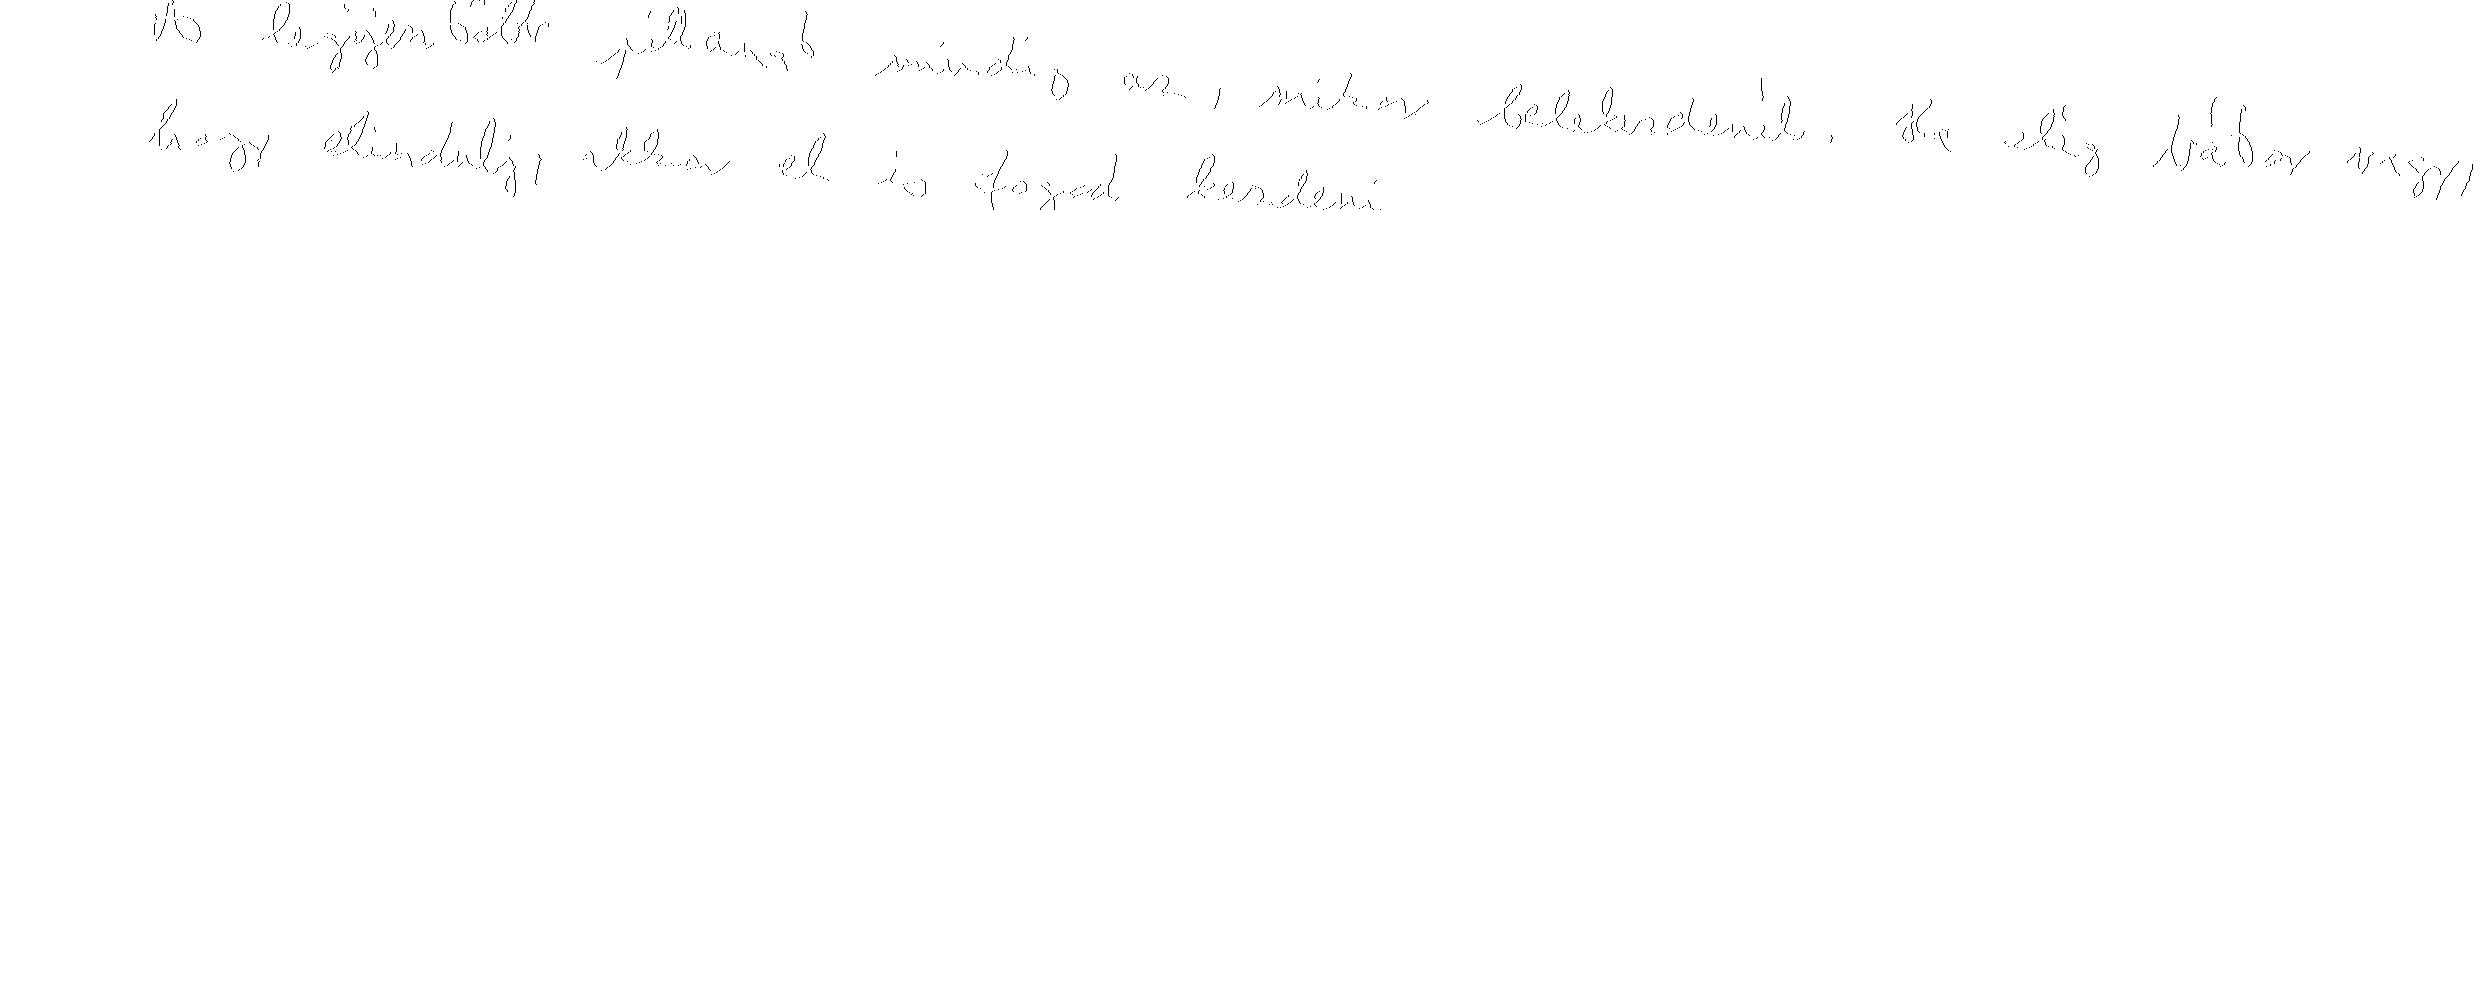 A legijesztőbb pillanat mindig az, mikor belekezdenél. Ha elég bátor vagy,
hogy elindulj, akkor el is fogod kezdeni